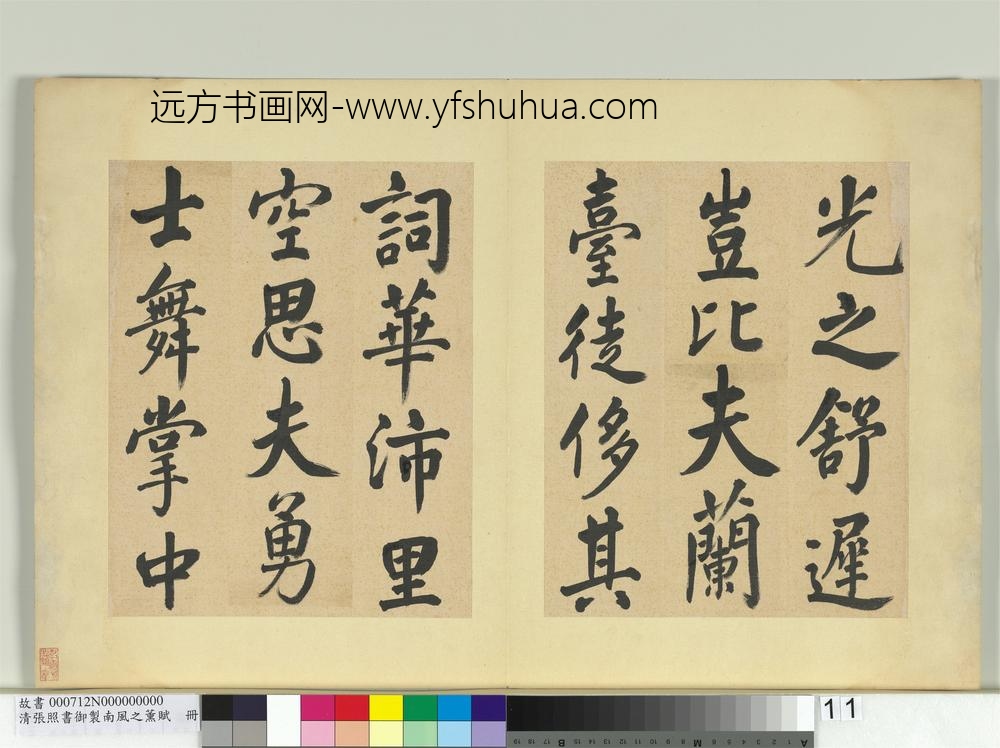 远方书画网-www.yfshuhua.com
光之舒遲
豈比夫蘭
臺徒侈其
詞華沛里
空思夫勇
士舞掌中
故書 000712N000000000
清張照書御製南風之薰賦 冊
11